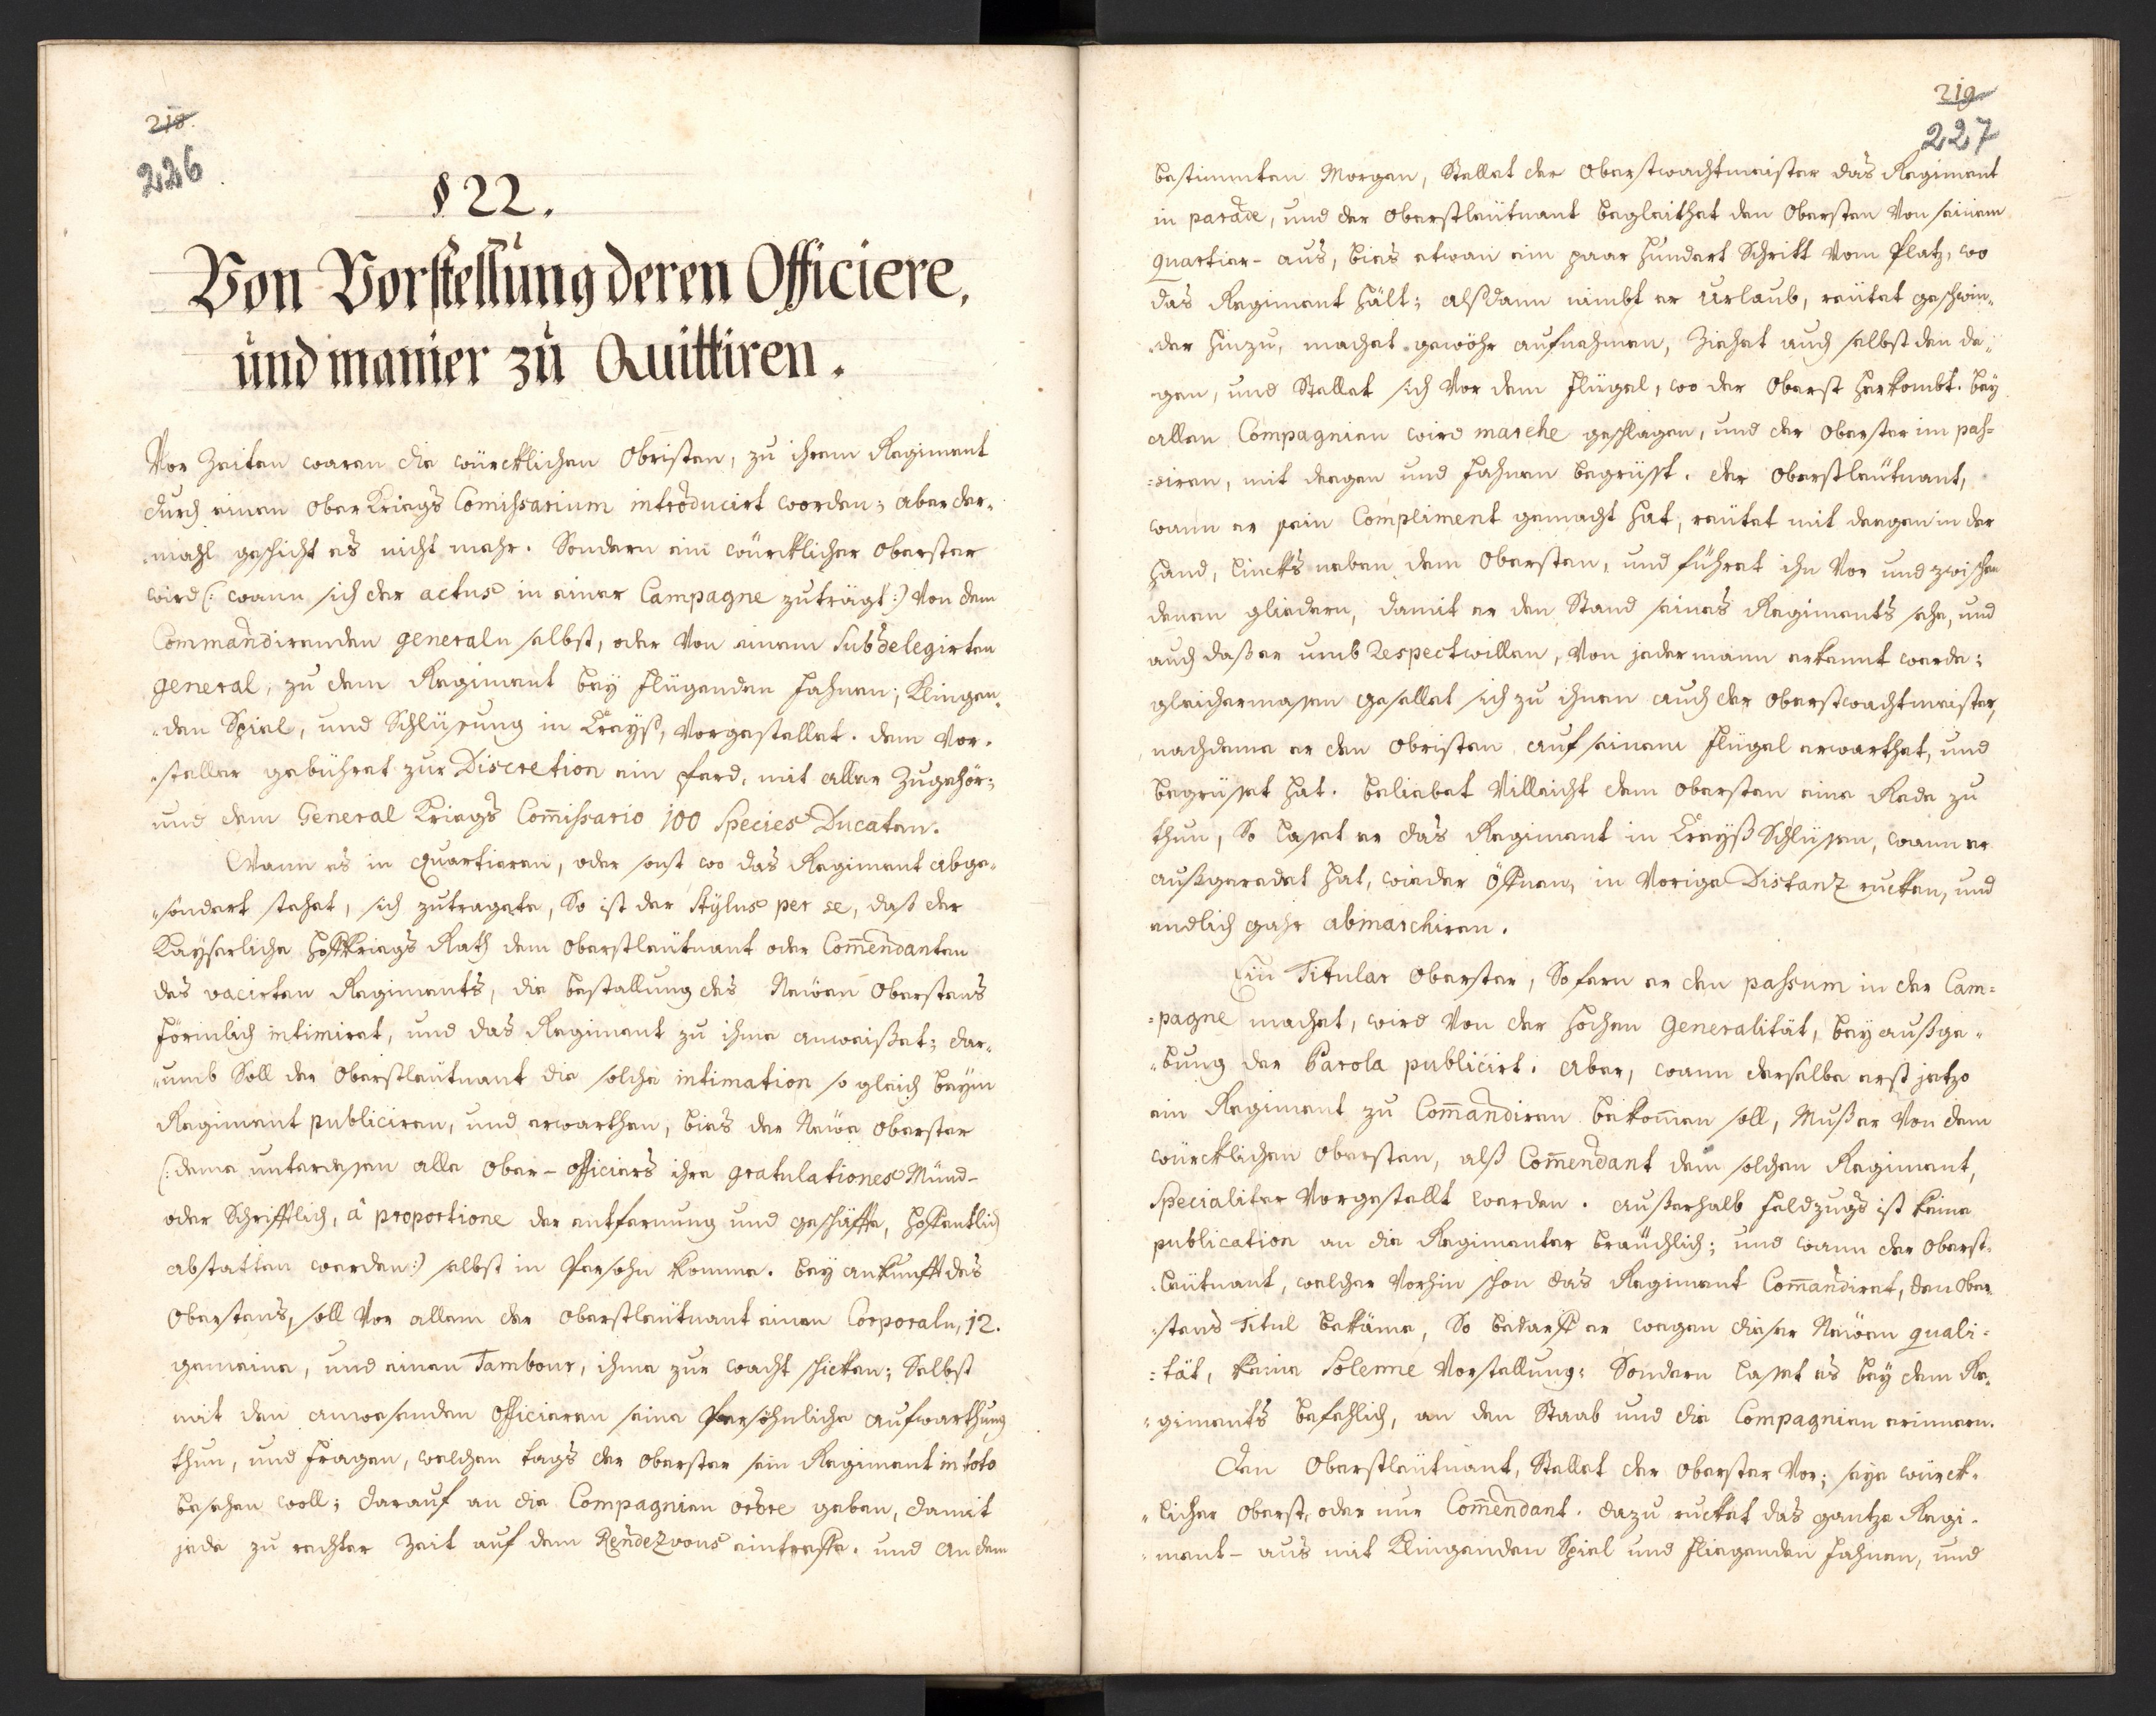 218.
226
§ 22.
Von Vorstellung deren Officiere,
und manier zu Quittiren.
Vor Zeiten waren die würcklichen Obristen, zu ihrem Regiment
durch einen Ober Kriegs Comissarium introducirt worden; aber der„
„mahl geschicht es nicht mehr. Sondern ein würcklicher Oberster
wird (: wann sich der actus in einer Campagne zuträgt :) Von dem
Commandirenden generaln selbst, oder Von einem Subdelegirten
general, zu dem Regiment bey flügenden Fahnen; Klingen„
„den Spiel, und Schlüsung in Creyß, Vorgestellet. dem Vor„
„steller gebühret zur Discretion ein Pferd, mit aller Zugehör:
und dem General Kriegs Comissario 100 Species Ducaten.
Wann es in Quartieren, oder sonst wo das Regiment abge„
„söndert stehet, sich zutragete, So ist der Stylus per se, daß der
Kayserliche Hoffkriegs Rath dem Oberstleütnant oder Comendanten
des vacirten Regiments, die bestallung des Neüen Oberstens
förmlich intimiret, und das Regiment zu ihme anweißet; dar„
„umb Soll der Oberstleütnant die solche intimation so gleich beym
Regiment publiciren, und erwarthen, bies der Neüe Oberster
(: deme unterdessen alle Ober-officiers ihre gratulationes Münd-
oder Schrifftlich, â proportione der entfernung und geschäffte, hoffentlich
abstatten werden :) selbst in Persohn komme. bey ankunfft des
Oberstens, soll Vor allem der Oberstleütnant einen Corporaln, 12.
gemeine, und einen Tambour, ihme zur wacht schicken; Selbst
mit den anwesenden Officieren seine Persöhnliche aufwarthung
thun, und fragen, welchen tags der Oberster sein Regiment in toto
besehen woll; darauf an die Compagnien ordre geben, damit
jede zu rechter Zeit auf dem Rendezvous eintreffe. und an dem
219
227
bestimmten Morgen, Stellet der Oberstwachtmeister das Regiment
in parade, und der Oberstleütnant begleithet den Obersten Von seinem
Quartier- aus, bies etwan ein paar hundert Schritt Vom Platz, wo
das Regiment hält; alßdann nimbt er Urlaub, reütet geschwin„
„der hinzu, machet gewöhr aufnehmen, Ziehet auch selbst den de„
gen, und Stellet sich Vor dem flügel, wo der Oberst herkombt. bey
allen Compagnien wird marche geschlagen, und der Oberster im pas=
=siren, mit deegen und Fahnen begrüsst. der Oberstleütnant,
wann er sein Compliment gemacht hat, reütet mit deegen in der
hand, lincks neben dem Obersten, und führet ihn Vor und zwischen
denen gliedern, damit er den Stand seines Regiments sehe, und
auch daß er umb Respect willen, Von jedermann erkennt werde;
gleichermasen gesellet sich zu ihnen auch der Oberstwachtmeister,
nachdeme er den Obristen auf seinem flügel erwarthet, und
begrüsset hat. beliebet Villeicht dem Obersten eine Rede zu
thun, So lasset er das Regiment in Creyß Schlüssen, wann er
außgeredet hat, wieder Öffnen, in Vorige Distanz rucken, und
endlich gahr abmarchiren.
Ein Titular Oberster, So fern er den passum in der Cam=
=pagne machet, wird Von der hochen Generalität, bey außge„
„bung der Parola publicirt. aber, wann derselbe erst jetzo
ein Regiment zu Comandiren bekomen soll, Muß er Von dem
würcklichen Obersten, alß Comendant dem solchen Regiment,
Specialiter Vorgestellt werden. außerhalb feldzugs ist keine
publication an die Regimenter braüchlich; und wann der Oberst„
„leütnant, welcher Vorhin schon das Regiment Comandiret, den Ober„
„stens Titul bekäme, So bedarff er wegen dieser Neüen quali=
=tät, keine Solenne Vorstellung; Sondern lasset es bey dem Re„
„giments befehlich, an den Staab und die Compagnien erinnern.
Den Oberstleütnant, Stellet der Oberster Vor; seye würck„
„licher Oberst, oder nur Comendant. dazu rucket das gantze Regi„
„ment- aus mit Klingenden Spiel und fliegenden Fahnen, und